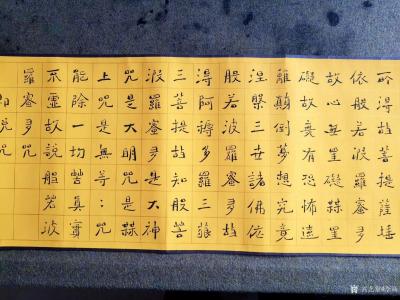 所得故菩提薩埵
依般若波羅蜜多
故心無罣礙無罣
礙故無有恐怖遠
離顛倒夢想究竟
涅槃三世諸佛依
般若波羅蜜多故
得阿耨多羅三藐
三菩提故知般若
波羅蜜多是大神
咒是大明咒是無
上咒是無等：咒
能除一切苦真實
不虛故說般若波
羅蜜多咒
即說咒